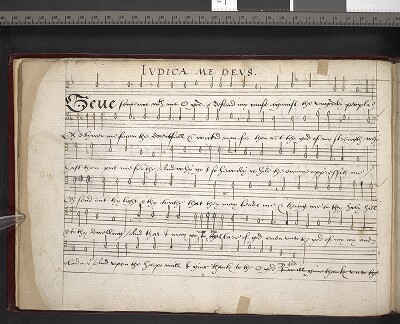 IVDICA ME DEVS.
Geue sentence with me O god, & defend my cause against the ungodly people
& delyuer me from the deceitfull & wicked man for thou art the god of my strength why
hast thou put me from the, And why go I so heauely whyle the enemye oppresseth me
O send out thy light & thy truthe that they may leade me & bring me to thy holy hill
& to thy dwelling And that I may go to the of god euen unto the god of my ioy and
And upon the harpe will I giue thanks to the O god I will giue thanks unto the